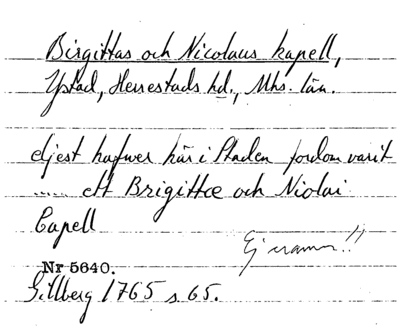 Birgittas och Nicolaus kapell,
Ystad, Herrestads hd., Mhs. län.
djest hafwer här i Staden fordom varit
..... ett Brigittæ och Niolai
Capell
Ej samma!!
Nr 5640.
Gillberg 1765 s. 65.